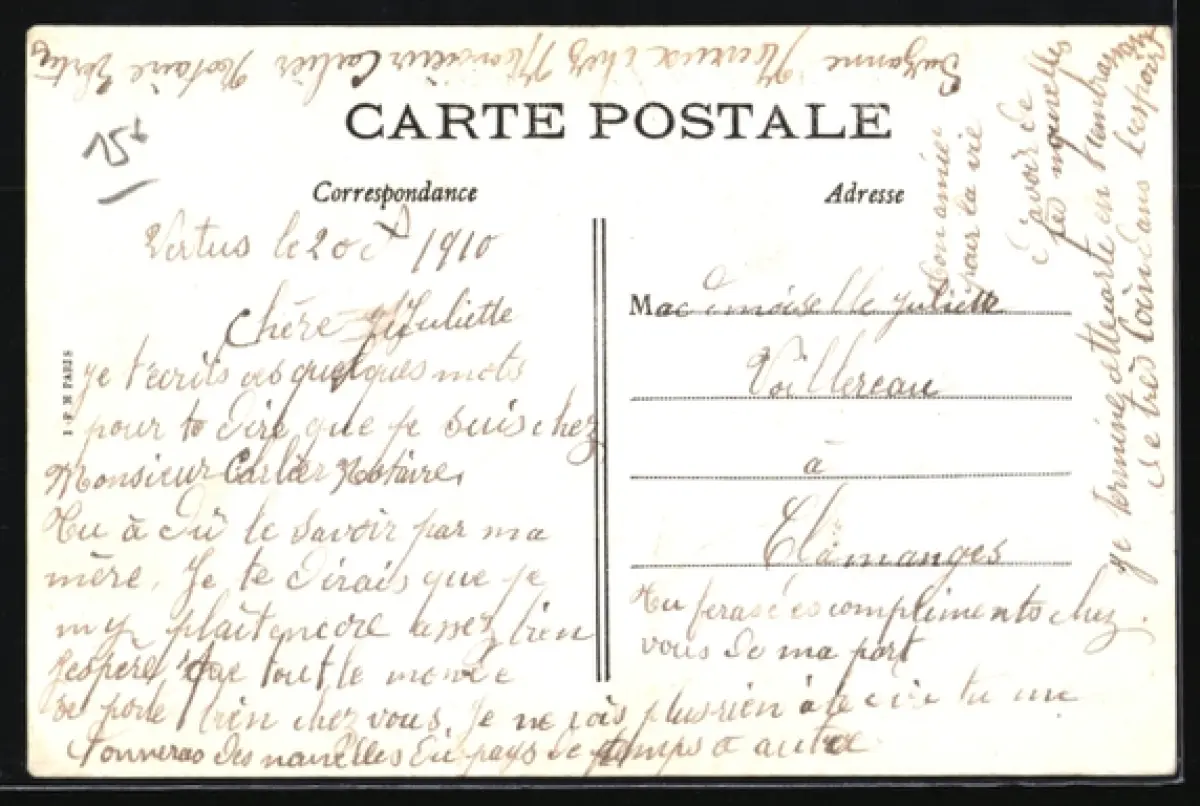 CARTE POSTALE
Correspondance
Adresse
15
Vertus le 20 1910
Chère Juliette
je t'ecrits ces quelques mots
pour te dire que je suis chez
Monsieur Carlier Notaire.
Tu à dû le savoir par ma
mère. Je te dirais que je
m'y plait encore assez bien
J'espère que tout le monde
se porte bien chez vous. Je ne vois plus rien à te dire tu me
donneras des nouvelles du pays de temps a autre
Mademoiselle Juliette
Voillereau
à
Clamanges
Tu feras des compliments chez
vous de ma part
je termine cette carte en t'embrassant
de très loin dans l'espoir
d'avoir de
tes nouvelles
ton amie
pour la vie
Suzanne chez Monsieur Carlier Notaire Vertus
I.P.M PARIS